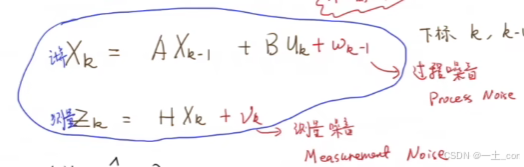 X_k = A X_{k-1} + B U_k + ω_{k-1} 下标 k, k-1
过程噪音
Process Noise
测量 Z_k = H X_k + V_k 测量噪音
Measurement Noise
CSDN @一土_cor